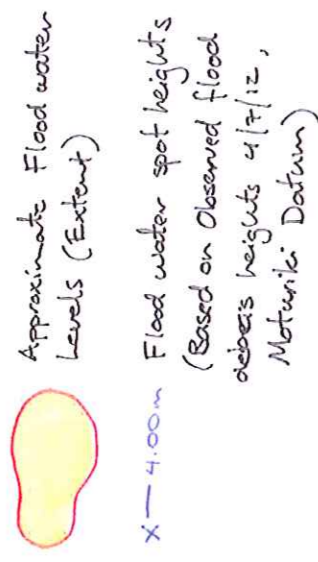 Approximate Flood water
Levels (Extent)
X — 4.00m
Flood water spot heights
(Based on Observed flood
debris heights 4/7/12,
Moturiki Datum)